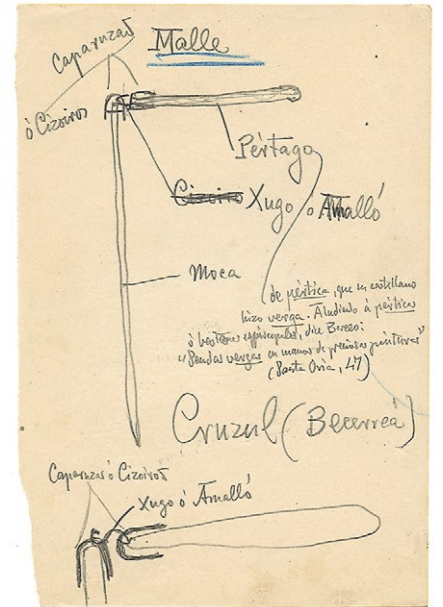 Malle
Caparuzas
ó Cizoiros
Pértago
Cizoiro Xugo o Amalló
Moca
de pértica, que en castellano
hizo verga. Aludiendo á pérticas
ó bastones episcopales, dice Berceo:
"Sendas vergas en manos de preciosas pinturas"
(Santa Oria, 47)
Cruzul (Becerreá)
Caparuzas ó Cizoiros
Xugo ó Amalló